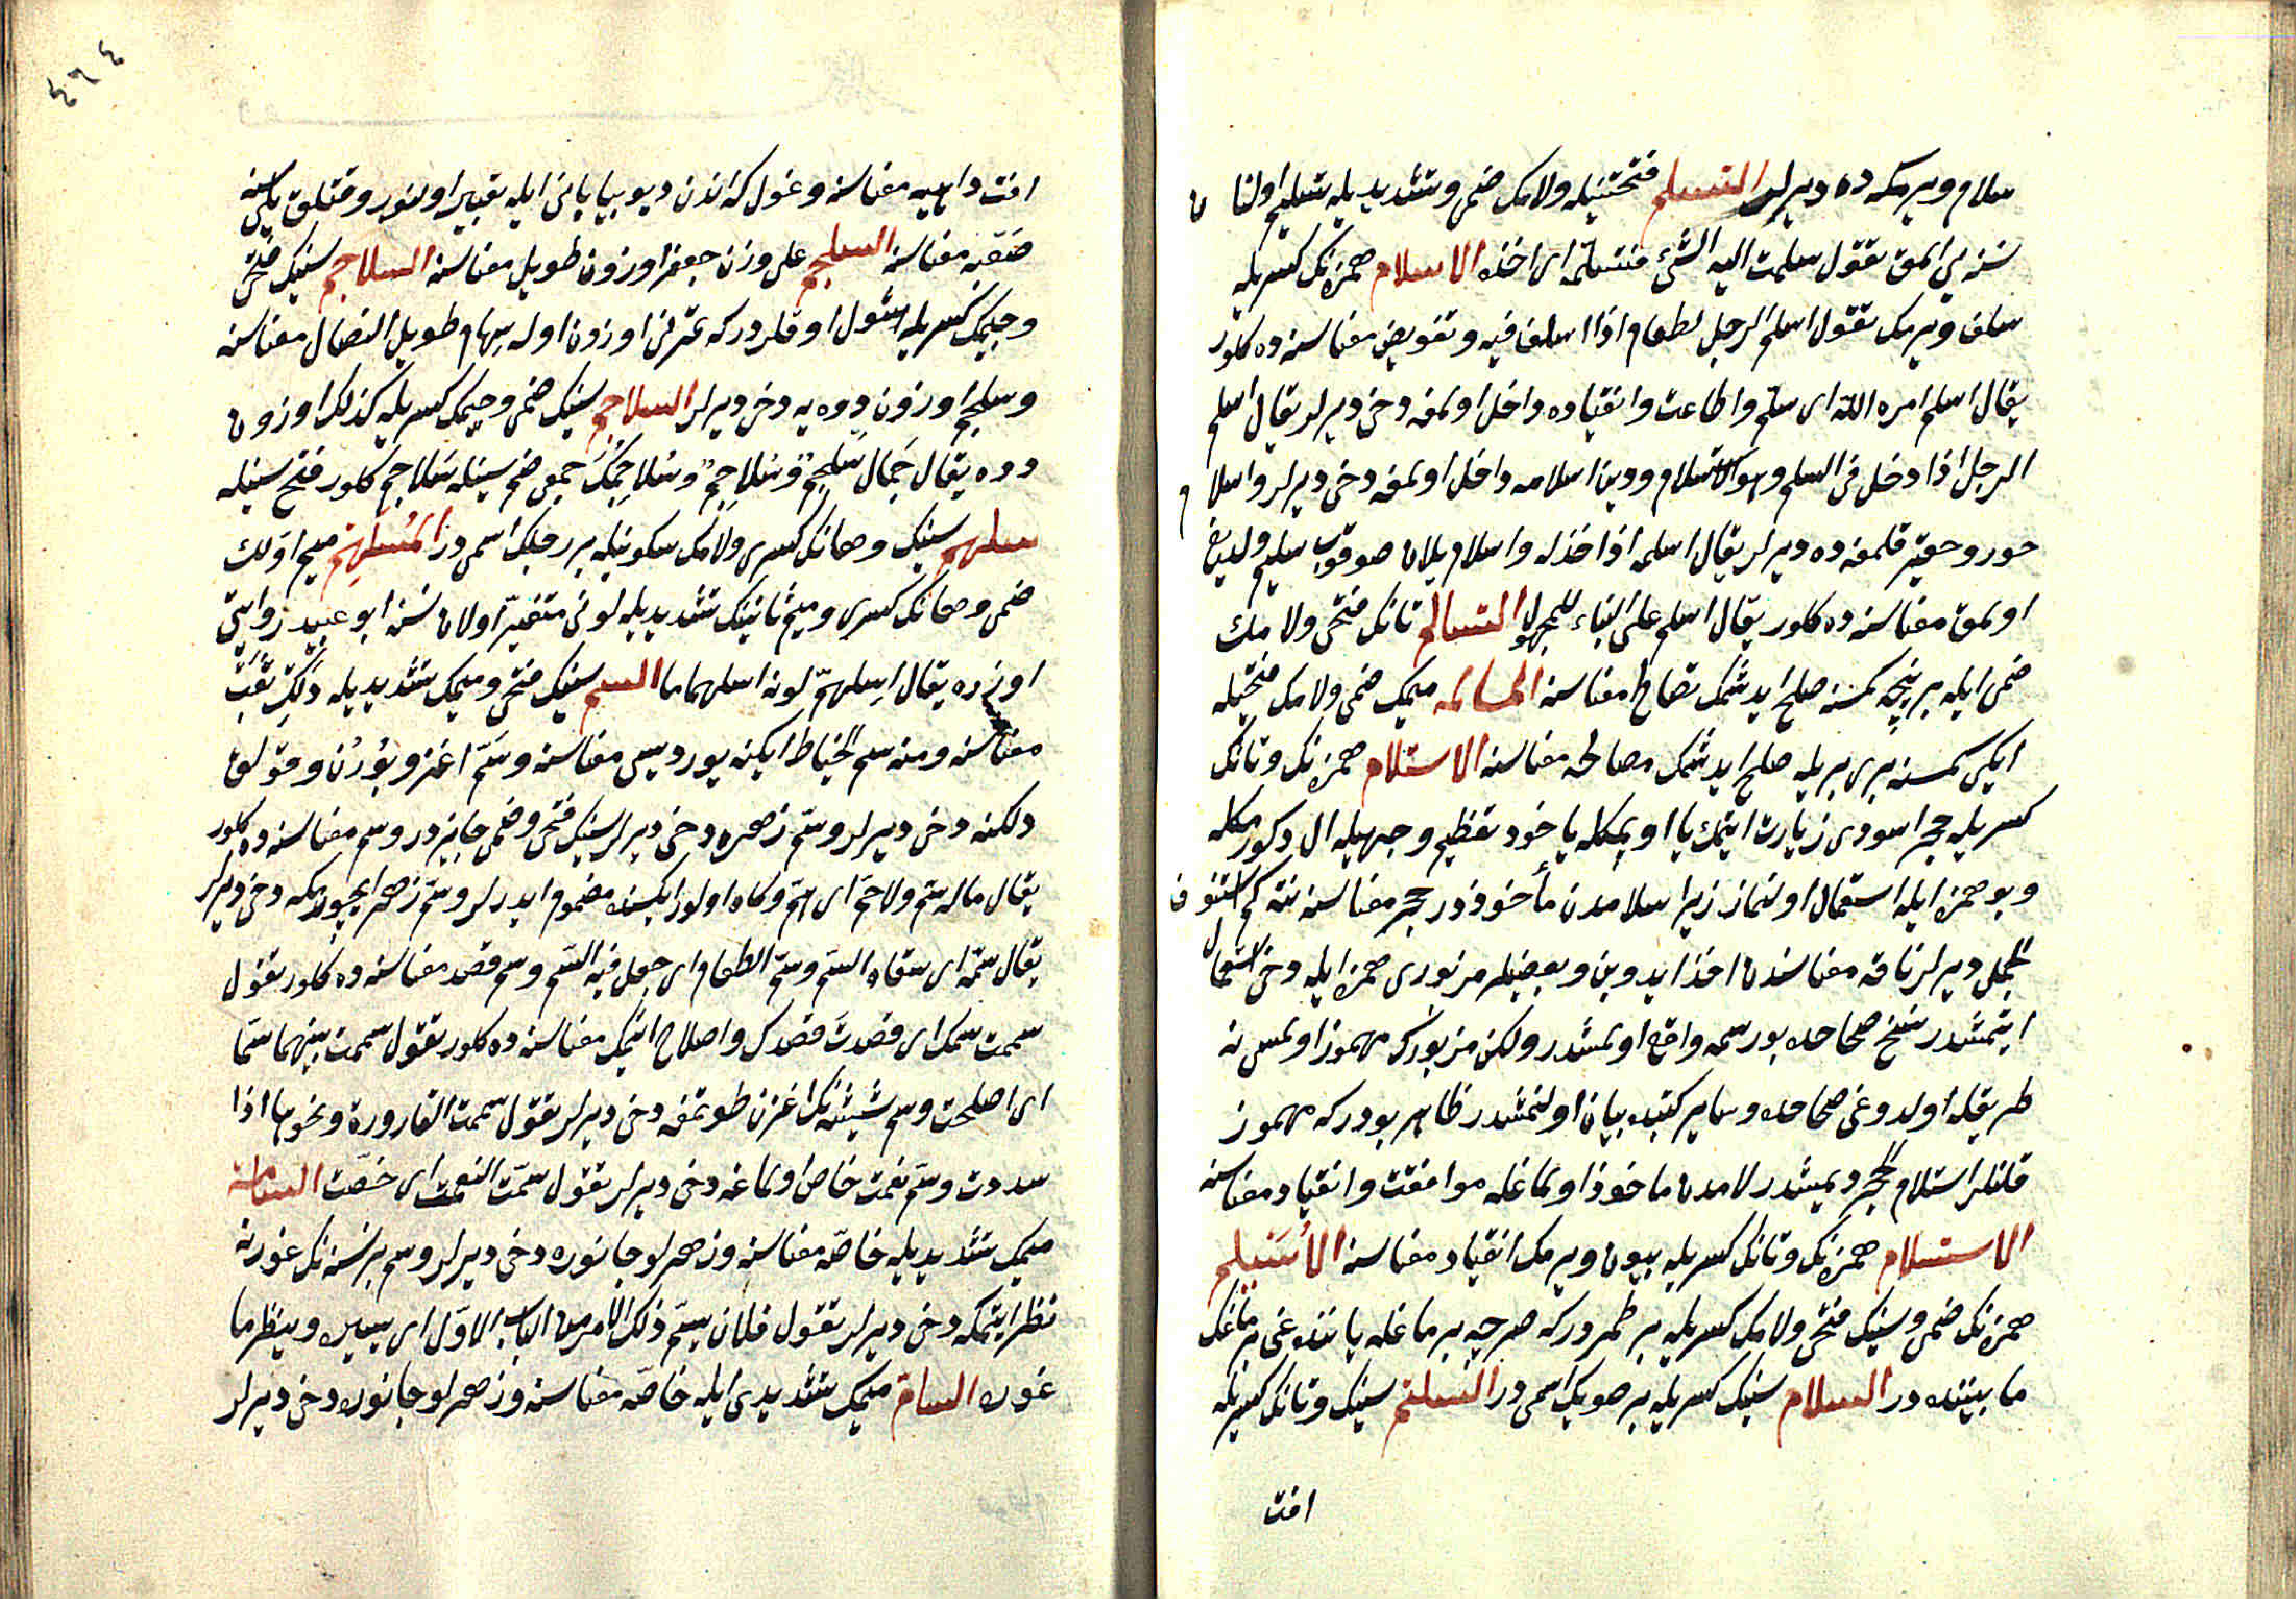 سلام ویرمکه ده دیرلر التسلم فتحتینله ولامک ضمی وتشدیدیله تسلیم اولنان
نسنه یی المق تقول سلمت الیه الشئ فتسلمه ای اخذه الاسلام همزه نک کسریله
سلف ویرمک تقول اسلم الرجل لطعام اذا اسلف فیه وتفویض معناسنه ده کلور
یقال اسلم امره الله ای سلم واطاعت وانقیاده داخل اولمغه دخی دیرلر یقال اسلم
الرجل اذا دخل فی السلم وهو الاستلام ودین اسلامه داخل اولمغه دخی دیرلر واسلام
خور وحقیر قلمغه ده دیرلر یقال اسلمه اذا خذله واسلام ییلان صوقوب سلیم
اولمق معناسنه ده کلور یقال اسلم علی البناء للمجهول التسالم تانک فتحی ولامک
ضمی ایله بر نیجه کمسنه صلح ایدشمک تصالح معناسنه المسالمه میمک ضمی ولامک فتحیله
ایکی کمسنه بری بریله صلح ایدشمک مصالحه معناسنه الاستلام همزه نک وتانک
کسریله حجر اسودی زیارت ایتمک یا اوپمکله یاخود تعظیم وجهیله ال دکورمکله
وبو همزه ایله استعمال اولنماز زیرا سلامدن مأخوذدر حجر معناسنه نته کم استنوق
الجمل دیرلر ناقه معناسندن اخذ ایدوب وبعضیلر مزبوری همزه ایله دخی استعمال
ایتمشدر نسخ صحاحده بو رسمه واقع اولمشدر ولکن مزبورک مهموز اولمسی نه
طریقله اولدوغی صحاحده وسایر کتبده بیان اولنمشدر ظاهر بودرکه مهموز
قلنلر استلام الحجر دیمشدر لامدن ماخوذ اولماغله موافقت وانقیاد معناسنه
الاستسلام همزه نک وتانک کسریله بیون ویرمک انقیاد معناسنه الاسیلم
همزه نک ضمی وسینک فتحی ولامک کسریله بر طمردرکه صرچه برماغله یاننده غی برماغک
مابیننده در السلام سینک کسریله بر صویک اسمی در السلتم سینک وتانک کسریله
افت
٤٦٤
افت داهیه معناسنه وغول که اندن دیو بیابانی ایله تعبیر اولنور وقتلق ییلی
معناسنه السلجم علی وزن جعفر اوزون طویل معناسنه السلاجم سینک فتحی
وجیمک کسریله شول اوقلردرکه تمرنی اوزون اوله سهام طویل النصال معناسنه
وسلجم اوزون دوه یه دخی دیرلر السلاجم سینک ضمی وجیمک کسریله کذلک اوزون
دوه یقال جمال سلجم وسلاجم وسلاجمک جمعی ضم سینله سلاجم کلور فتح سینله
سلهم سینک وهانک کسری ولامک سکونیله بر رجلک اسمی در المسلهم میم اولک
ضمی وهانک کسری ومیم ثانینک تشدیدیله لونی متغیر اولان نسنه ابو عبید روایتی
اوزره یقال اسلهم لونه اسلهماما السم سینک فتحی ومیمک تشدیدیله دلک ثقب
معناسنه ومنه سم الخیاط ایکنه یوردیسی معناسنه وسم اغز وبورن وقولق
دلکنه دخی دیرلر وسم زهره دخی دیرلر سینک فتحی وضمی جایزدر وسم معناسنه ده کلور
یقال ماله سم ولا حم ای هم وکاه اولور ایکیسنده مضموم ایدرلر وسم زهر ایچورمکه دخی دیرلر
یقال سمه ای سقاه السم وسم الطعام ای جعل فیه السم وسم قصد معناسنه ده کلور تقول
سممت سمک ای قصدت قصدک واصلاح ایتمک معناسنه ده کلور تقول سممت بینهما سما
ای اصلحت وسم شیشه نک اغزن طوتمغه دخی دیرلر تقول سممت القارورة ونحوها اذا
سددت وسم نعمت خاص اولماغه دخی دیرلر تقول سمت النعمة ای خصت السامة
میمک تشدیدیله خاصه معناسنه وزهرلو جانوره دخی دیرلر وسم بر نسنه نک غورنه
نظر ایتمکه دخی دیرلر تقول فلان یسم ذلک الامر من الباب الاول ای یسبره وینظر ما
غوره السام میمک تشدیدی ایله خاصه معناسنه وزهرلو جانوره دخی دیرلر